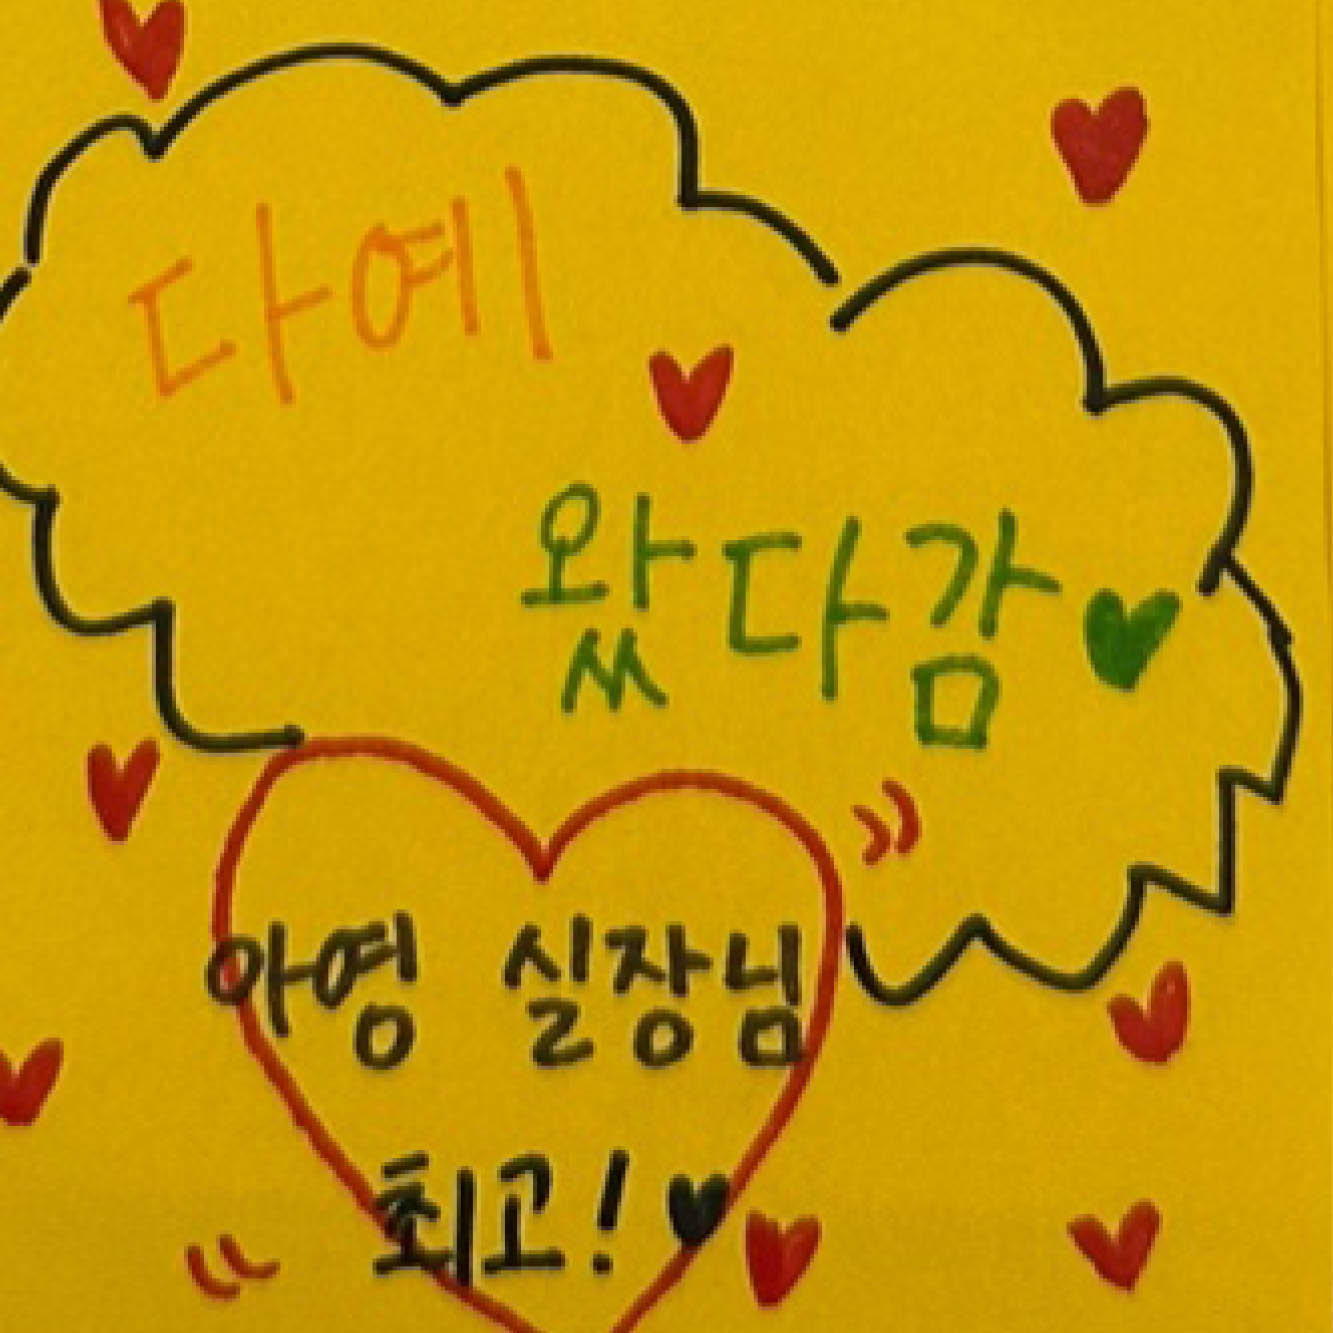 다예
왔다감
아영 실장님
최고!